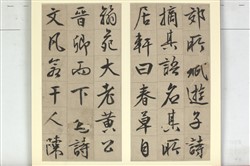 郊所賦遊子詩
摘其語名其所
居軒曰春草自
翰苑大老黄公
晉卿而下之詩
文凡若干人陳